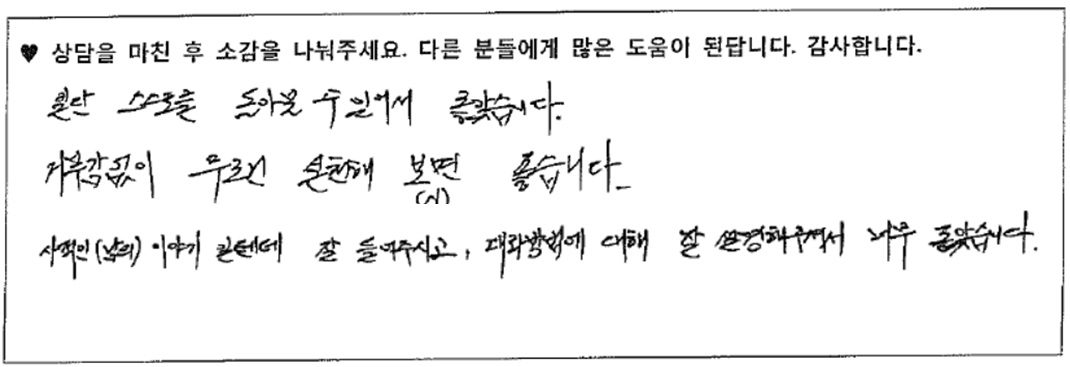 ♥ 상담을 마친 후 소감을 나눠주세요. 다른 분들에게 많은 도움이 된답니다. 감사합니다.
일단 스스로를 돌아볼 수 있어서 좋았습니다.
거부감없이 무조건 실천해 보면 좋습니다.
사적인(남의) 이야기 일텐데 잘 들어주시고, 대화방법에 대해 잘 설명해주셔서 너무 좋았습니다.